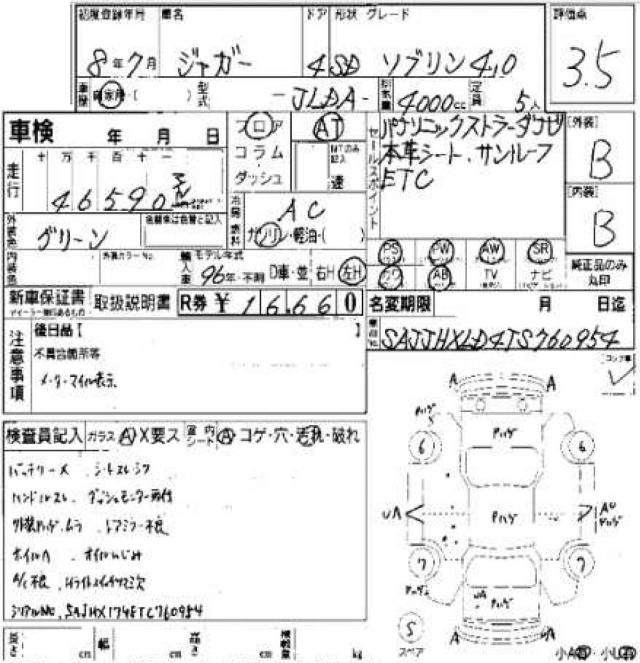 初度登録年月 車名 ドア 形状 グレード 評価点
8年7月 ジャガー 4 SD ソブリン4.0 3.5
車歴 自家用・( ) 型式 -JLDA- 排気量 4000cc 定員 5人
車検 年 月 日 フロア AT セールスポイント パナソニックストラーダナビ [外装]
コラム MTのみ記入 本革シート、サンルーフ B
走行 十 万 千 百 十 一 ダッシュ 速 ETC
46590 冷房 AC [内装]
外装色 グリーン 色替車は色替と記入 燃料 ガソリン・軽油・( ) B
内装色 外装カラーNo. 輸入車 モデル年式 PS PW AW SR
96年・不明 D車・並 右H 左H カワ AB TV ナビ 純正品のみ丸印
新車保証書 取扱説明書 R券 ¥ 16,660 名変期限 月 日迄
SAJJHXLD4TS760954
注意事項 後日品【 】
不具合箇所等
メーターマイル表示
検査員記入 ガラス A X要ス 室内シート A・コゲ・穴・若汚・破れ
バッテリーX シートスレシワ
ハンドルスレ
外装 ムラ ドアミラー不良
ホイルA オイルにじみ
A/C不良
シリアルNo. SAJHX174ETC760954
長さ cm 幅 cm 高さ cm 積載量 kg
A A
6 6
UA
7 7
A A
S
スペア